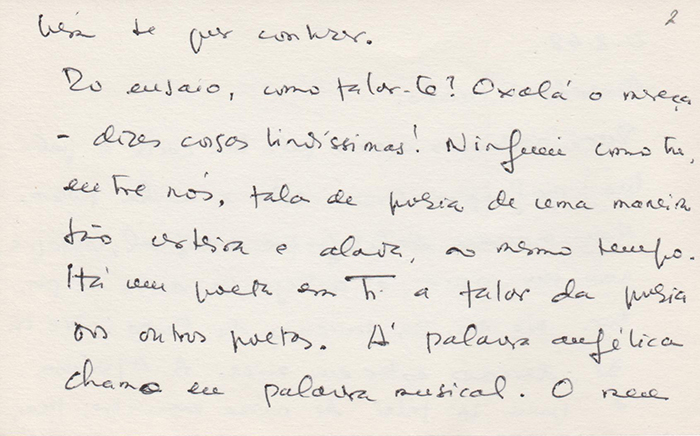 2
te por contar.
Do ensaio, como falar-te? Oxalá o mereça
- dizes coisas lindíssimas! Ninguém como tu,
entre nós, fala de poesia de uma maneira
tão certeira e alada, ao mesmo tempo.
Há um poeta em Ti a falar da poesia
aos outros poetas. À palavra angélica
chamo eu palavra musical. O meu